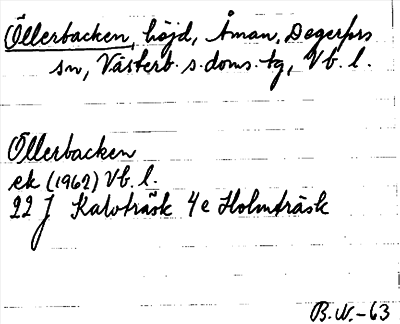 Öllerbacken, höjd, Åman, Degerfors
sn, Västerb. s. doms. tg, Vb. l.
Öllerbacken
ek (1962) Vb. l.
22 J Kalvträsk 4 e Holmträsk
B.N.-63